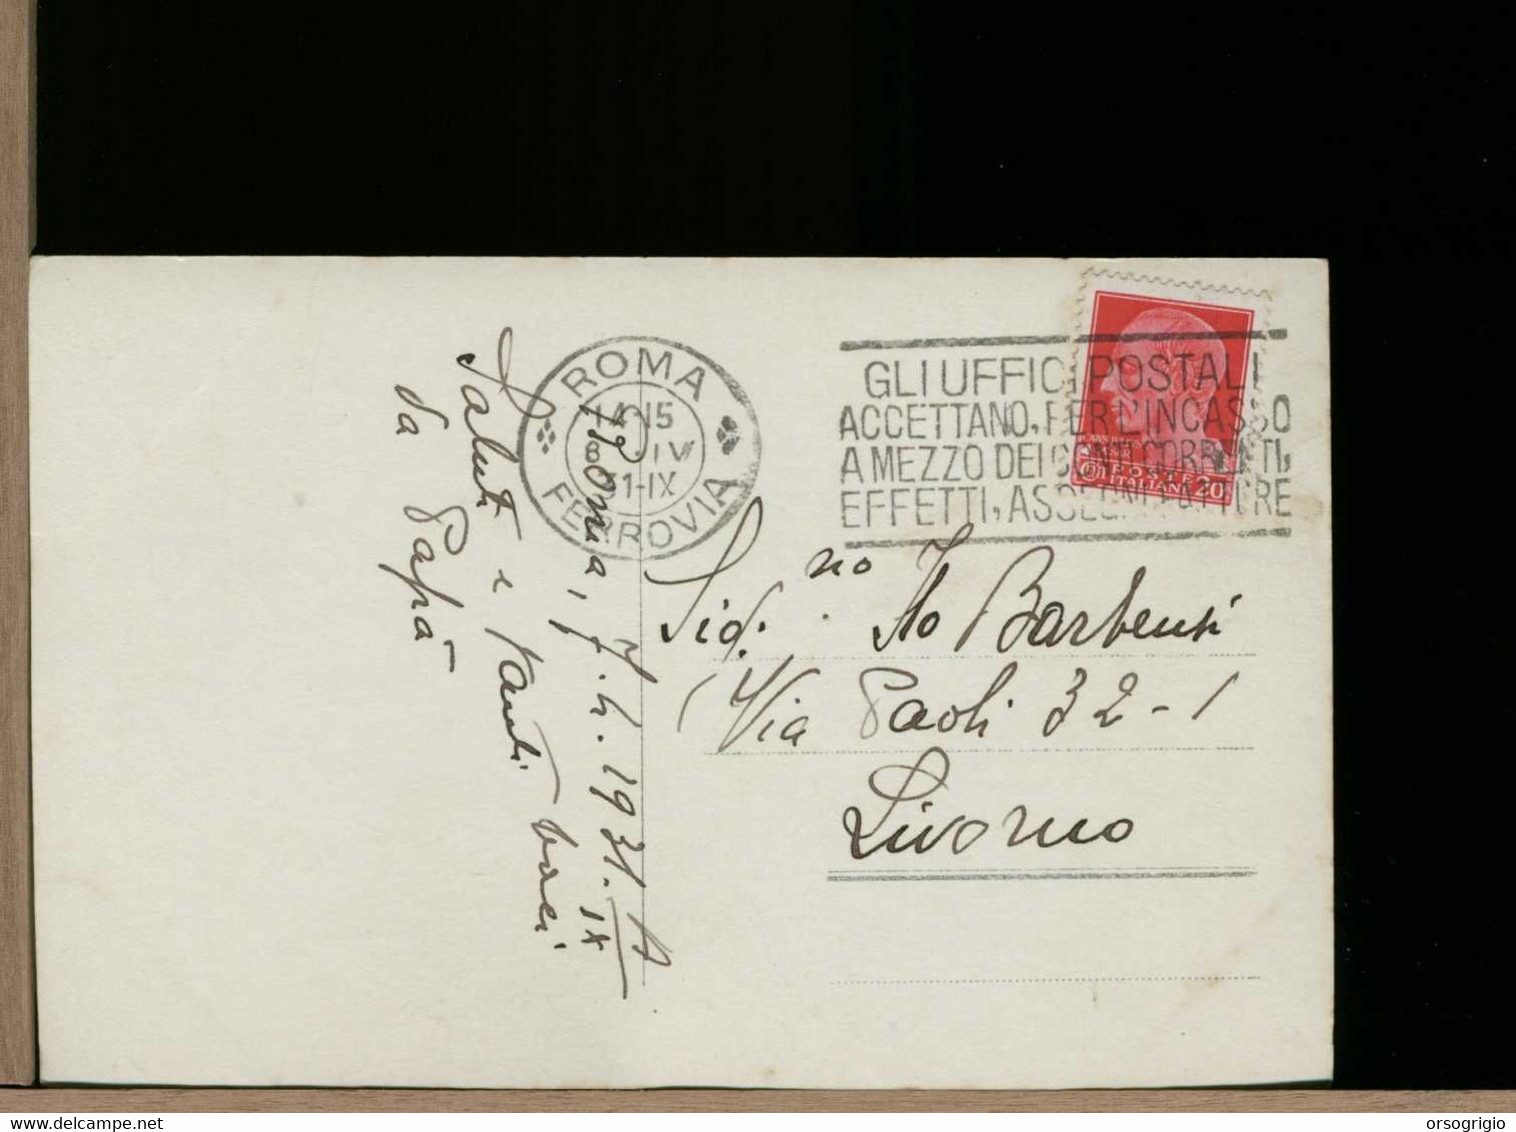 Roma, 7.4.1931. IX
Saluti e tanti baci
da Papà
ROMA
14-15
8·IV
31-IX
FERROVIA
GLI UFFICI POSTALI
ACCETTANO, PER L'INCASSO
A MEZZO DEI CONTI CORRENTI,
EFFETTI, ASSEGNI E LETTERE
POSTE
ITALIANE 20
Sig.no Ito Barbensi
Via Paoli 32-1
Livorno
www.delcampe.net
orsogrigio